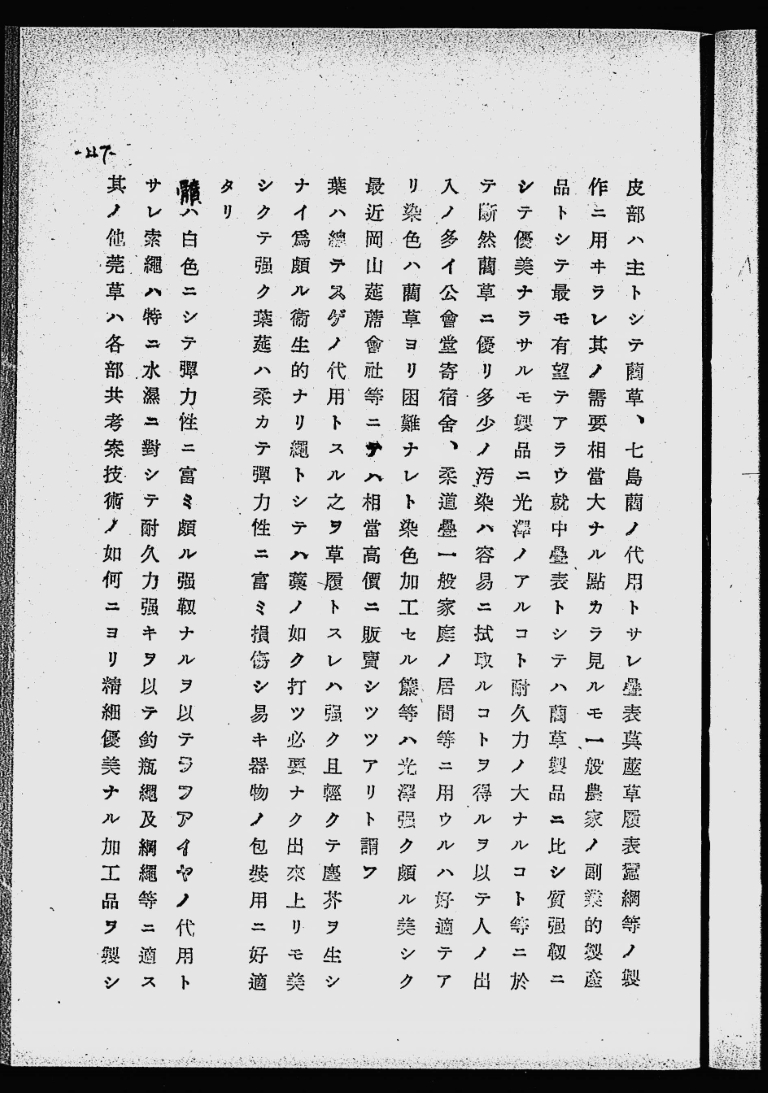 皮部ハ主トシテ藺草、七島藺ノ代用トサレ疊表茣蓙草履表窰綱等ノ製
作ニ用ヰラレ其ノ需要相當大ナル點カラ見ルモ一般農家ノ副業的製產
品トシテ最モ有望テアラウ就中疊表トシテハ藺草製品ニ比シ質强靱ニ
シテ優美ナラサルモ製品ニ光澤ノアルコト耐久力ノ大ナルコト等ニ於
テ斷然藺草ニ優リ多少ノ污染ハ容易ニ拭取ルコトヲ得ルヲ以テ人ノ出
入ノ多イ公會堂寄宿舍、柔道疊一般家庭ノ居間等ニ用ウルハ好適テア
リ染色ハ藺草ヨリ困難ナレト染色加工セル簾等ハ光澤强ク頗ル美シク
最近岡山莚蓆會社等ニテハ相當高價ニ販賣シツツアリト謂フ
葉ハ總テスゲノ代用トスル之ヲ草履トスレハ强ク且輕クテ塵芥ヲ生シ
ナイ爲頗ル衞生的ナリ繩トシテハ藁ノ如ク打ツ必要ナク出來上リモ美
シクテ强ク葉莚ハ柔カテ彈力性ニ富ミ損傷シ易キ器物ノ包裝用ニ好適
タリ
髓ハ白色ニシテ彈力性ニ富ミ頗ル强靱ナルヲ以テラフアイヤノ代用ト
サレ索繩ハ特ニ水濕ニ對シテ耐久力强キヲ以テ釣瓶繩及綱繩等ニ適ス
其ノ他莞草ハ各部共考案技術ノ如何ニヨリ精細優美ナル加工品ヲ製シ
-227-